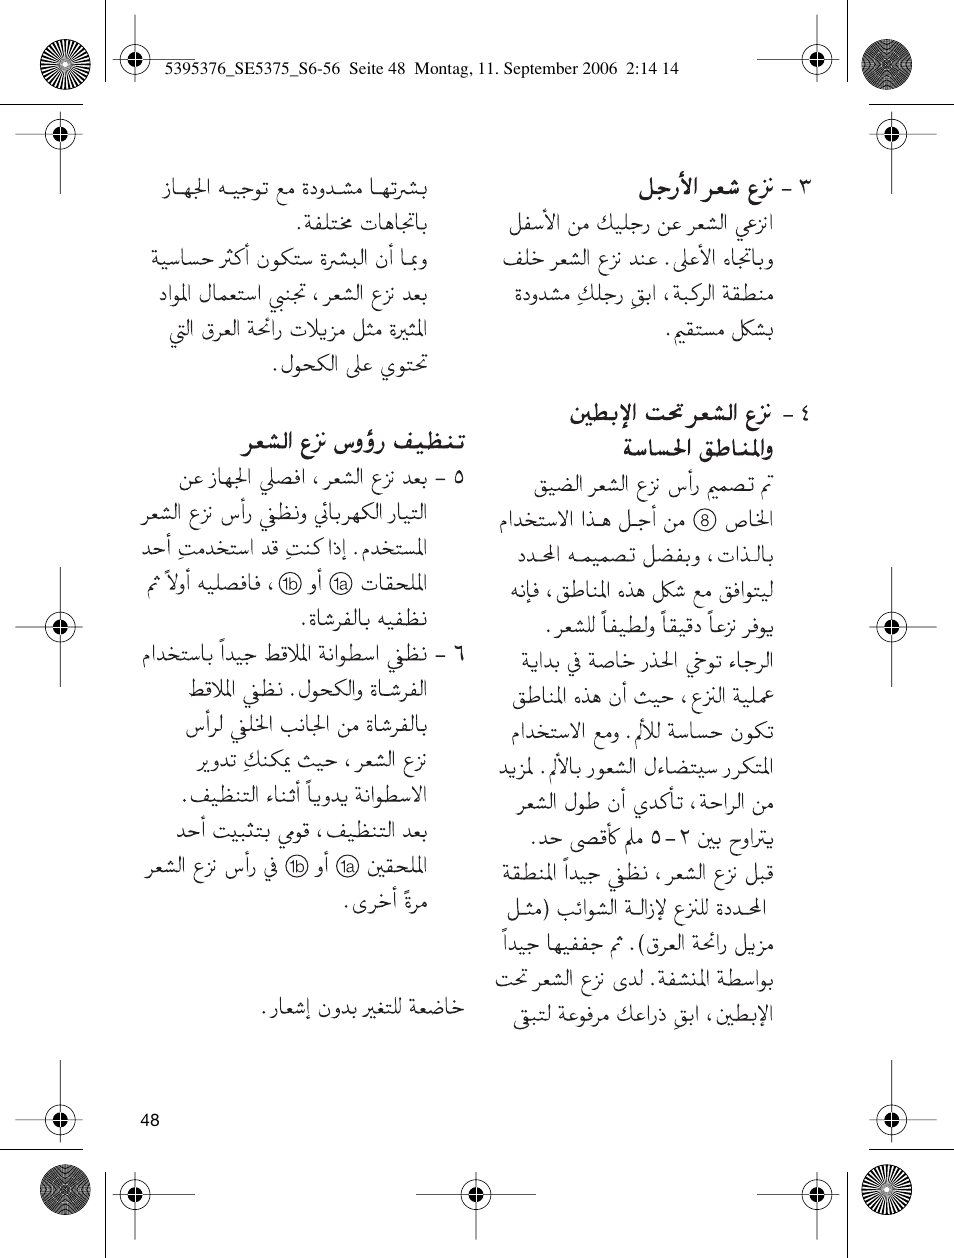 5395376_SE5375_S6-56 Seite 48 Montag, 11. September 2006 2:14 14
٣ – نزع شعر الأرجل
انزعي الشعر عن رجليك من الأسفل
وباتجاه الأعلى. عند نزع الشعر خلف
منطقة الركبة، ابقِ رجلكِ مشدودة
بشكل مستقيم.
٤ – نزع الشعر تحت الإبطين
والمناطق الحساسة
تم تصميم رأس نزع الشعر الضيق
الخاص 8 من أجل هذا الاستخدام
بالذات، وبفضل تصميمه المحدد
ليتوافق مع شكل هذه المناطق، فإنه
يوفر نزعاً دقيقاً ولطيفاً للشعر.
الرجاء توخي الحذر خاصة في بداية
عملية النزع، حيث أن هذه المناطق
تكون حساسة للألم. ومع الاستخدام
المتكرر سيتضاءل الشعور بالألم. لمزيد
من الراحة، تأكدي أن طول الشعر
يتراوح بين ٢-٥ ملم كأقصى حد.
قبل نزع الشعر، نظفي جيداً المنطقة
المحددة للنزع لإزالة الشوائب (مثل
مزيل رائحة العرق). ثم جففيها جيداً
بواسطة المنشفة. لدى نزع الشعر تحت
الإبطين، ابقِ ذراعك مرفوعة لتبقى
بشرتها مشدودة مع توجيه الجهاز
باتجاهات مختلفة.
وبما أن البشرة ستكون أكثر حساسية
بعد نزع الشعر، تجنبي استعمال المواد
المثيرة مثل مزيلات رائحة العرق التي
تحتوي على الكحول.
تنظيف رؤوس نزع الشعر
٥ – بعد نزع الشعر، افصلي الجهاز عن
التيار الكهربائي ونظفي رأس نزع الشعر
المستخدم. إذا كنتِ قد استخدمتِ أحد
الملحقات 1a أو 1b، فافصليه أولاً ثم
نظفيه بالفرشاة.
٦ – نظفي اسطوانة الملاقط جيداً باستخدام
الفرشاة والكحول. نظفي الملاقط
بالفرشاة من الجانب الخلفي لرأس
نزع الشعر، حيث يمكنكِ تدوير
الاسطوانة يدوياً أثناء التنظيف.
بعد التنظيف، قومي بتثبيت أحد
الملحقين 1a أو 1b في رأس نزع الشعر
مرةً أخرى.
خاضعة للتغير بدون إشعار.
48